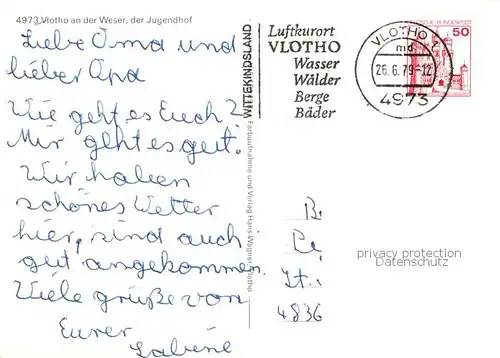 4973 Vlotho an der Weser, der Jugendhof
Liebe Oma und
lieber Opa
Wie geht es Euch?
Mir geht es gut.
Wir haben
schönes Wetter
hier, sind auch
gut angekommen.
Viele grüße von
Eurer
Sabine
WITTEKINDSLAND
Farbaufnahme und Verlag Hans Wagner, Vlotho
Luftkurort
VLOTHO
Wasser
Wälder
Berge
Bäder
VLOTHO 1
md
26.6.79-12
4973
DEUTSCHE BUNDESPOST
50
B.
Lt.
4836
privacy protection
Datenschutz